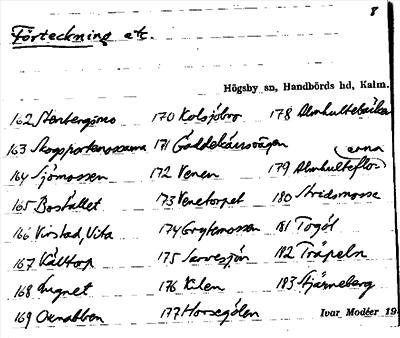 8
Förteckning etc.
Högsby sn, Handbörds hd, Kalm.
162 Stenbengömo 170 Kolsjöbro 178 Almhultebäcken
163 Skogsportenossarna 171 Gäddekärrsvägen
164 Sjömossen 172 Venen 179 Almhulteflo erna
165 Bostället 173 Venetorpet 180 Stridsmosse
166 Virstad, Vita 174 Grytemossen 181 Togöl
167 Källtop 175 182 Träpeln
168 Lugnet 176 Kilen 183 Stjärneberg
169 Ornabben 177 Horsegölen Ivar Modéer 19